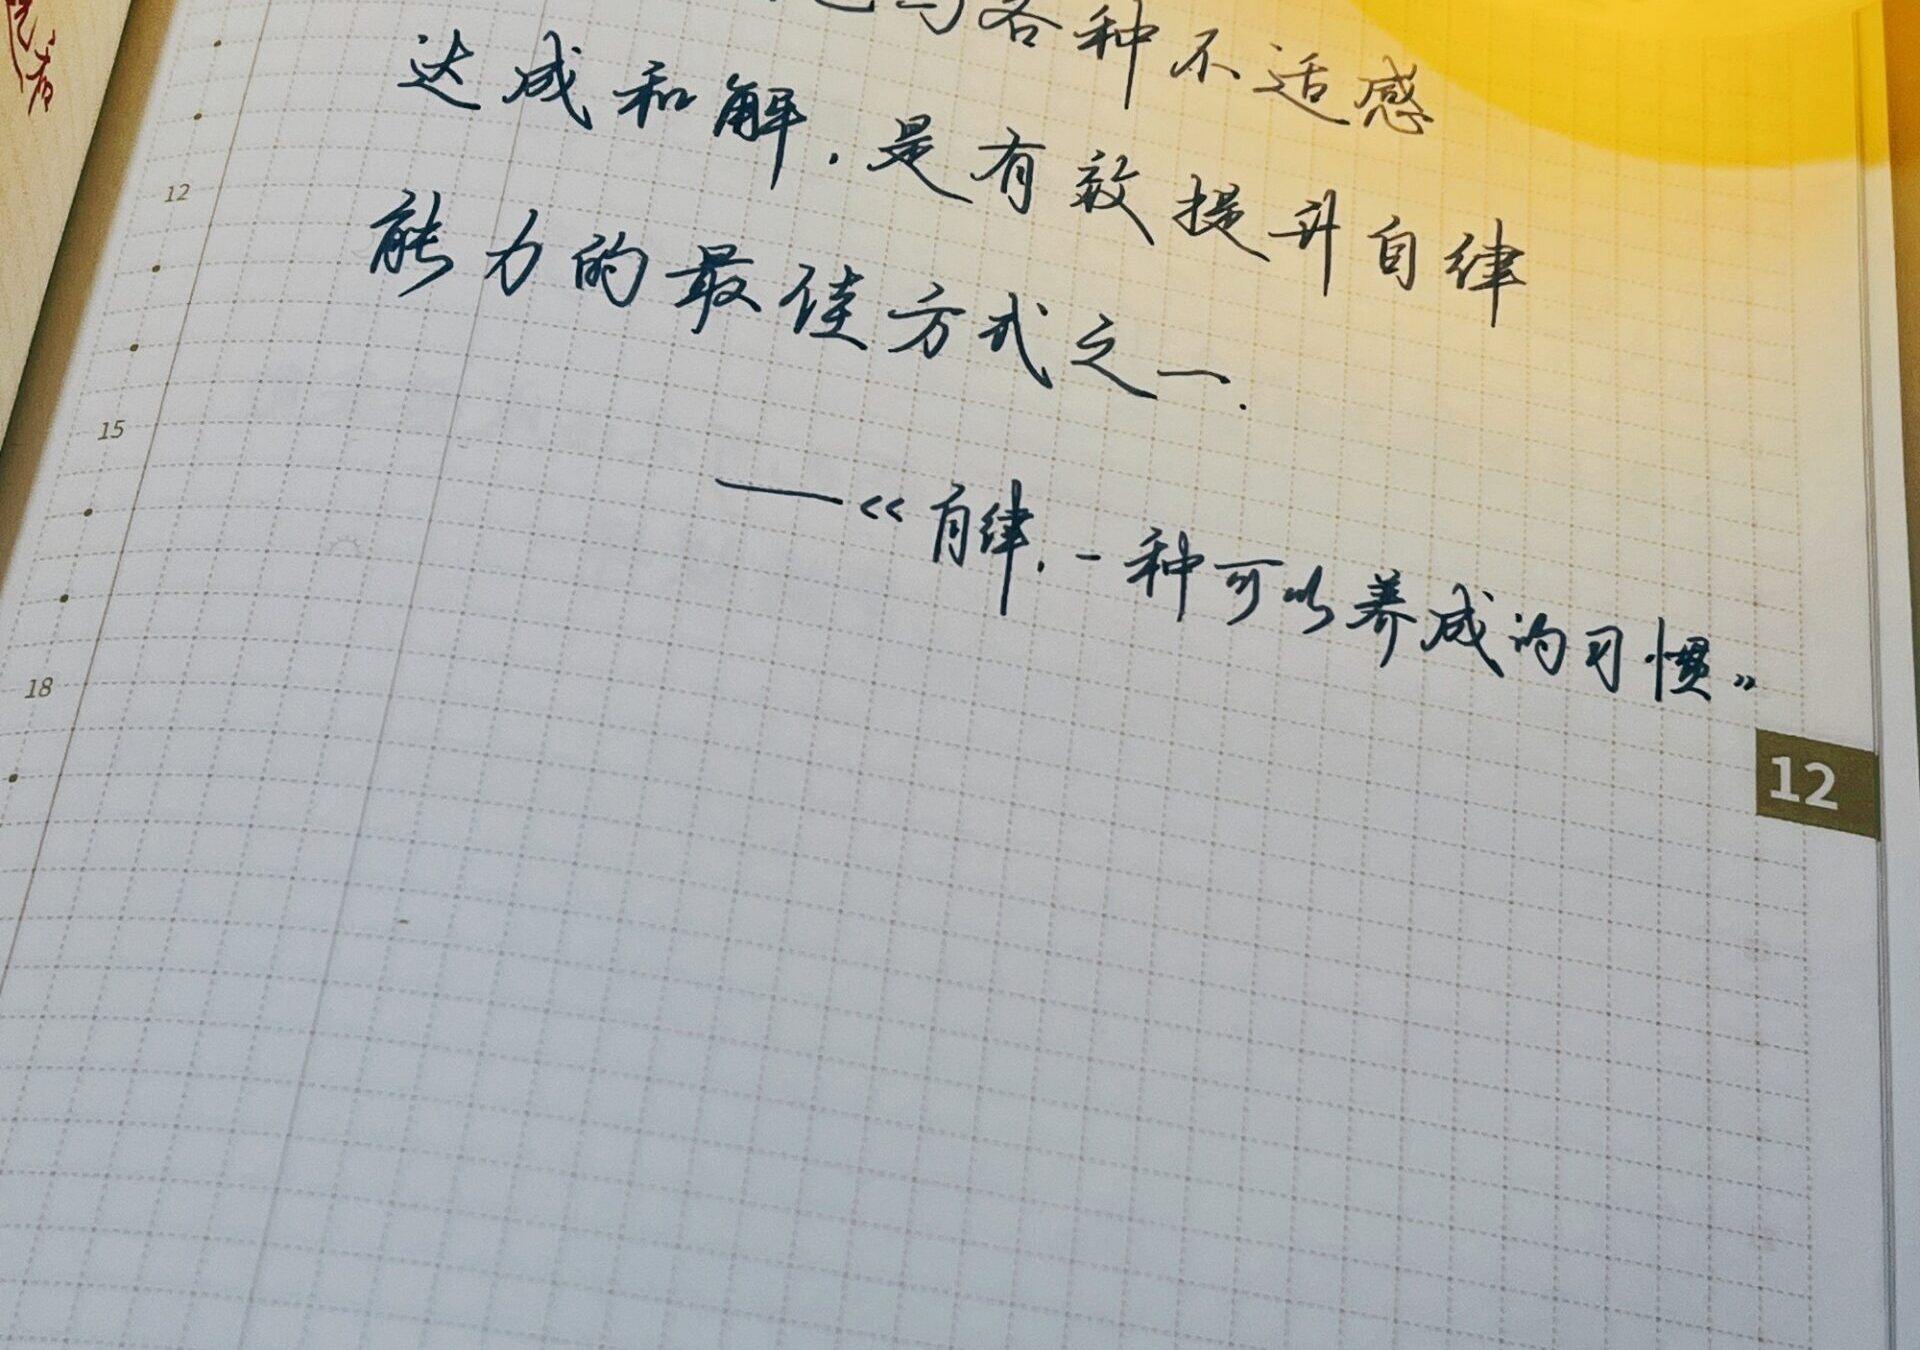 与各种不适感
达成和解.是有效提升自律
能力的最佳方式之一.
12
15
——《自律.一种可以养成的习惯》
18
12